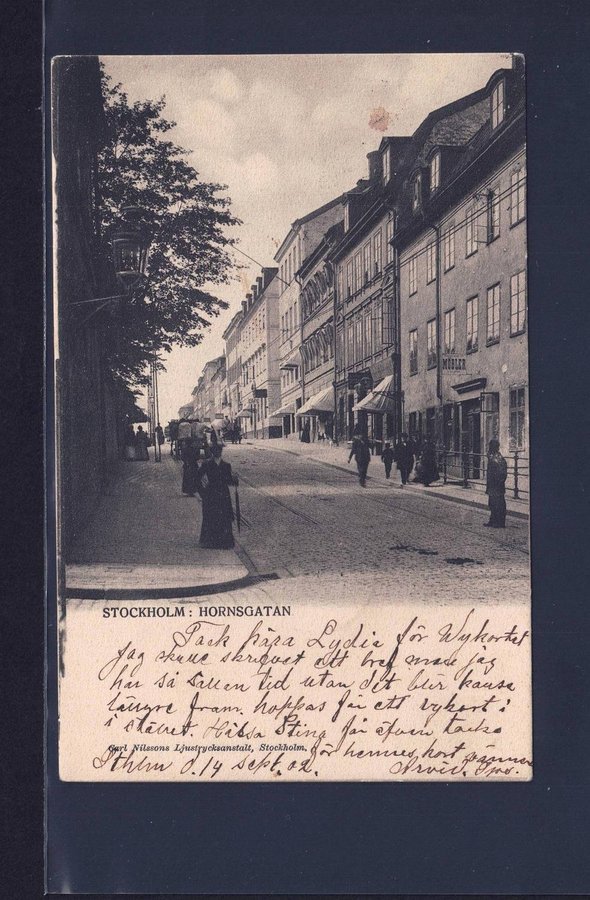 MÖBLER
STOCKHOLM: HORNSGATAN
Tack kära Lydia för Wykortet
jag skulle skrifvet ett bref men jag
har så sällan tid utan det blir kanse
längre fram. hoppas får ett vykort
i stället. Hälsa Sting får äfven tacka
Carl Nilssons Ljustrycksanstalt, Stockholm.
för hennes kort
Sthlm d. 14 sept. 02.
Arvid